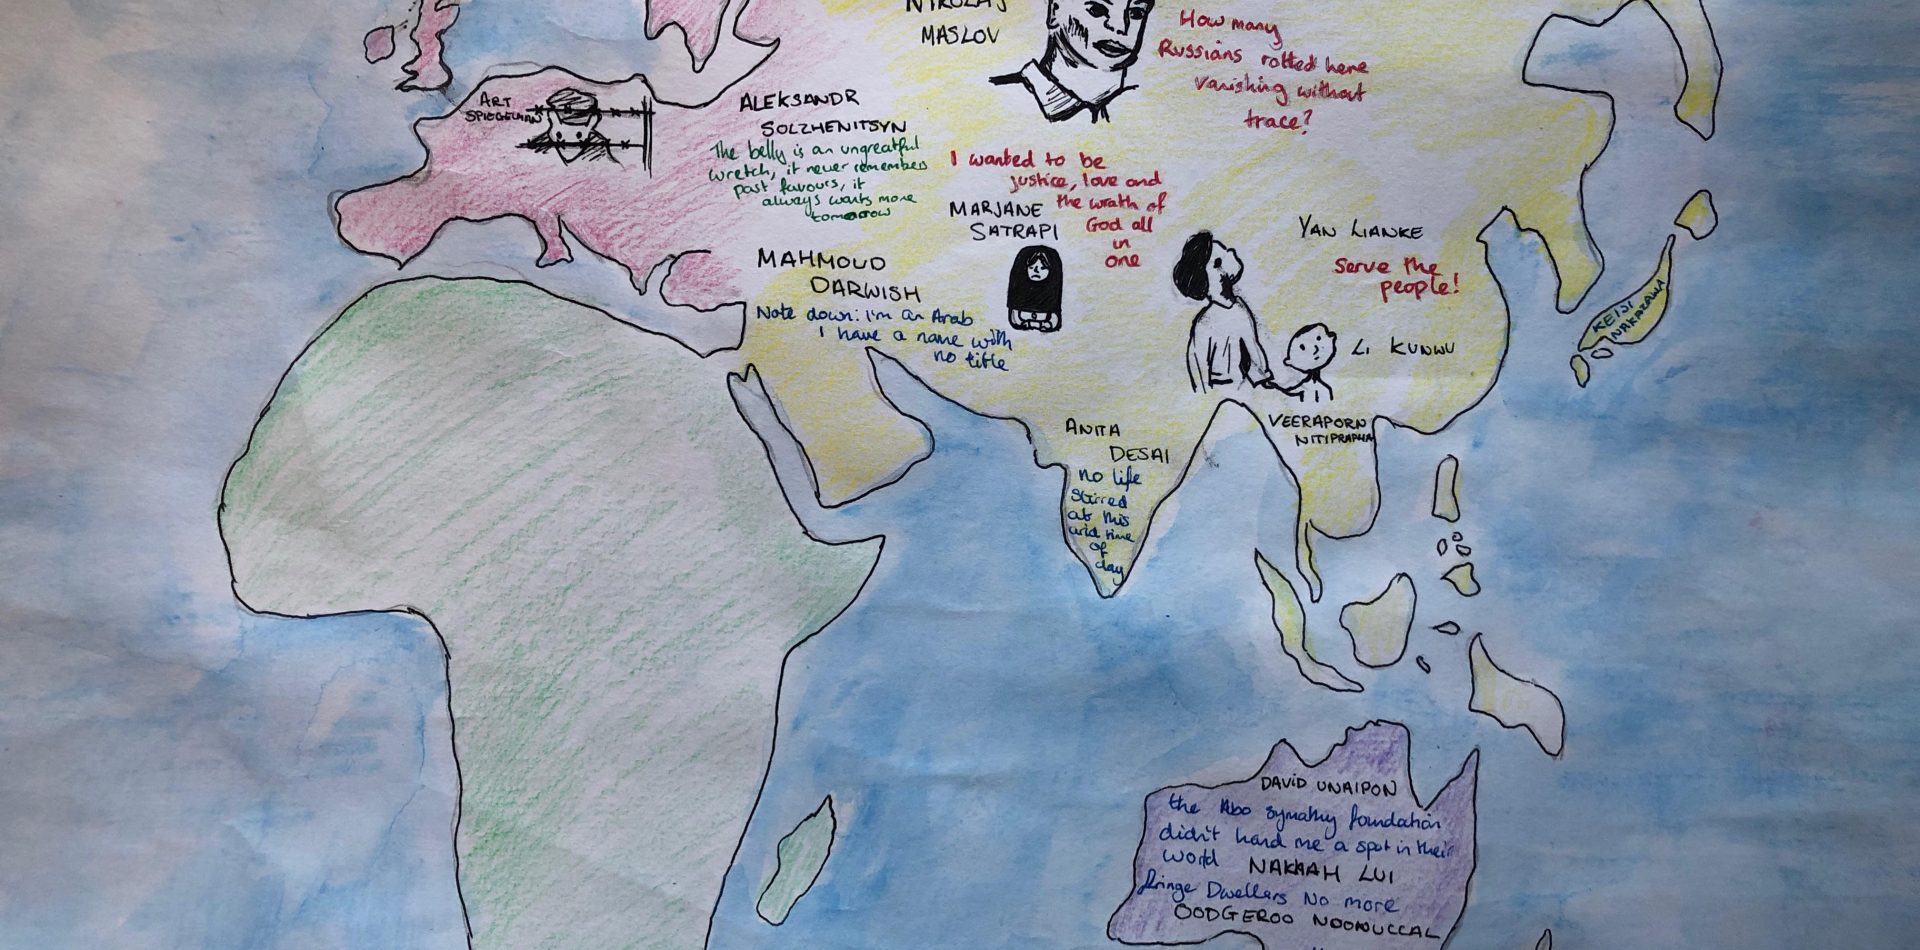 NIKOLAJ
MASLOV
How many
Russians rotted here
vanishing without
trace?
ART
SPIEGELMAN
ALEKSANDR
SOLZHENITSYN
The belly is an ungreatful
wretch, it never remembers
past favours, it
always wants more
tomorrow
I wanted to be
justice, love and
the wrath of
God all
in
one
MARJANE
SATRAPI
MAHMOUD
DARWISH
Note down: I'm an Arab
I have a name with
no title
YAN LIANKE
Serve the
people!
KEIJI
NAKAZAWA
LI KUNWU
VEERAPORN
NITIPRAPHA
ANITA
DESAI
no life
stirred
at this
arid time
of
day
DAVID UNAIPON
the Abo symathy foundation
didn't hand me a spot in their
world NAKKAH LUI
fringe Dwellers No more
OODGEROO NOONUCCAL